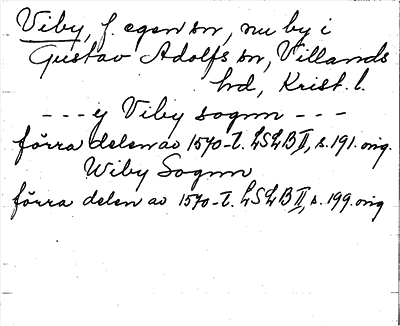 Viby, f. egen sn, nu by i
Gustav Adolfs sn, Villands
hd, Krist. l.
--- y Viby sognn ---
förra delen av 1570-t. LSLB II, s. 191. orig.
Wiby Sognn
förra delen av 1570-t. LSLB II, s. 199. orig